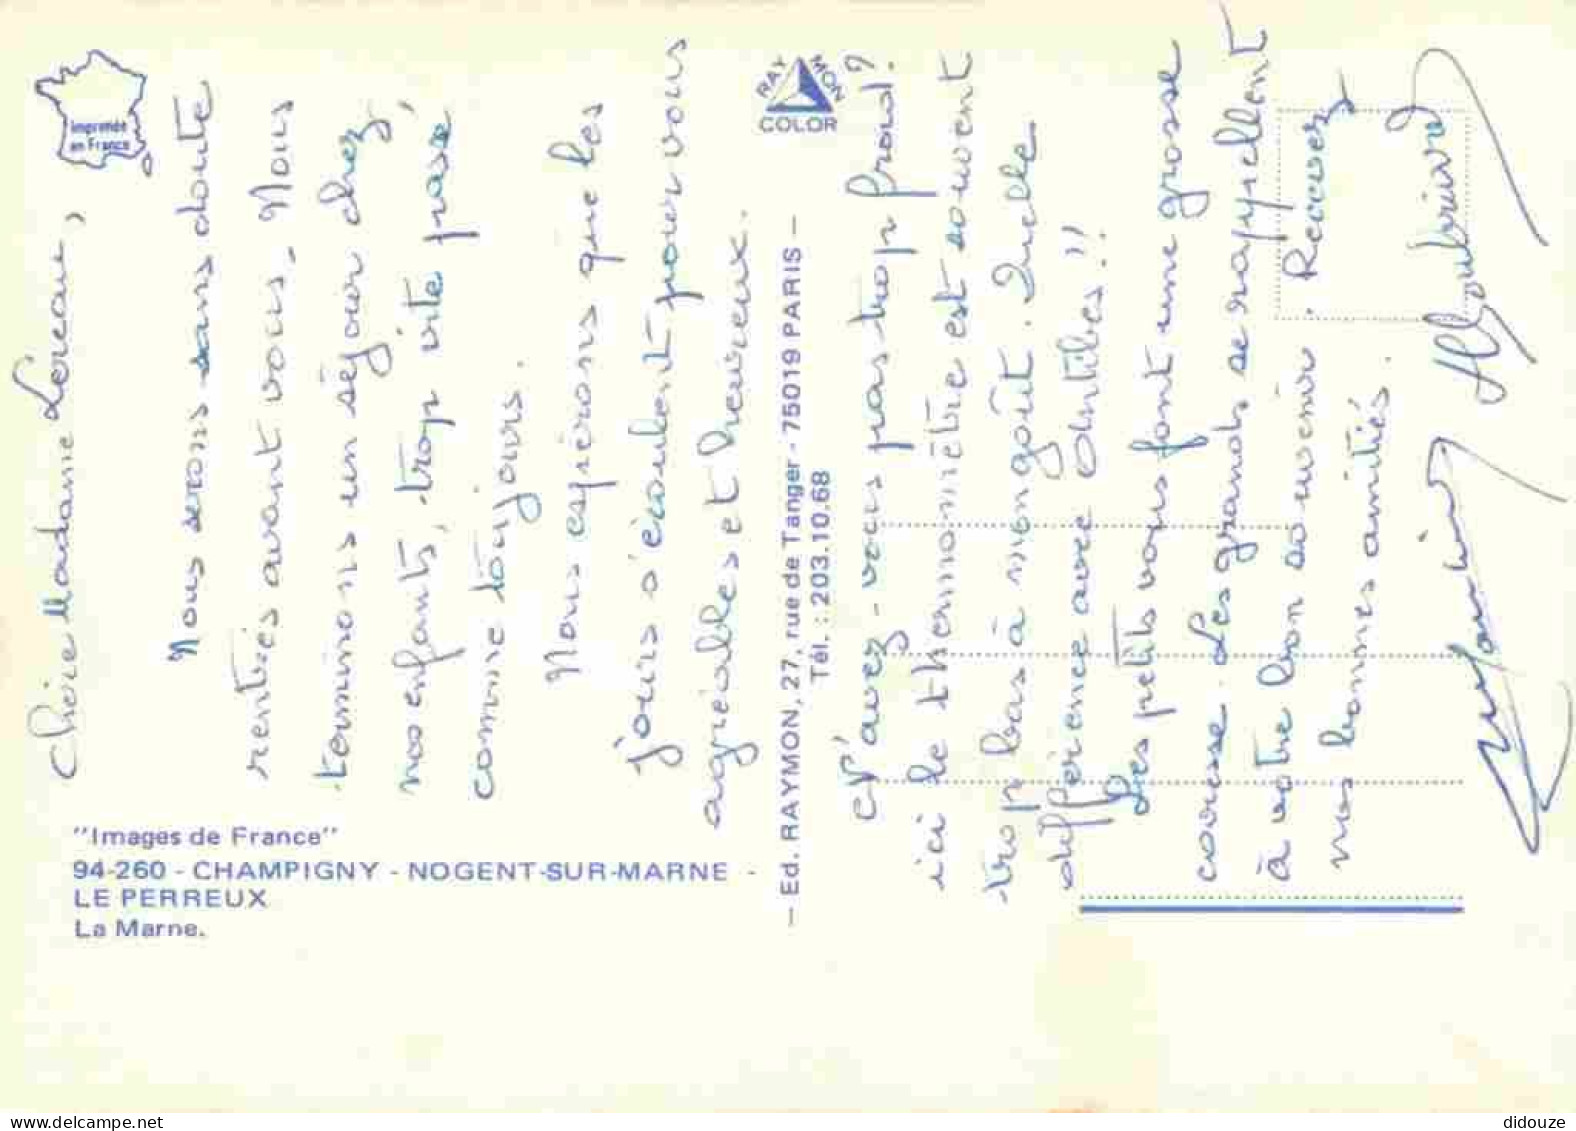 Imprimée
en France
RAYMON
COLOR
Chère Madame Loreau,
Nous serons sans doute
rentrés avant vous. Nous
terminons un séjour chez
nos enfants, trop vite passé,
comme toujours.
Nous espérons que les
jours s'écoulent pour vous
agréables et heureux.
N'avez-vous pas trop froid ?
ici le thermomètre est souvent
trop bas à mon goût. Quelle
différence avec Antibes !!
Les petits vous font une grosse
caresse. Les grands se rappellent
à votre bon souvenir. Recevez
nos bonnes amitiés.
"Images de France"
94-260 - CHAMPIGNY - NOGENT-SUR-MARNE -
LE PERREUX
La Marne.
— Ed. RAYMON, 27, rue de Tanger - 75019 PARIS —
Tél. : 203.10.68
didouze